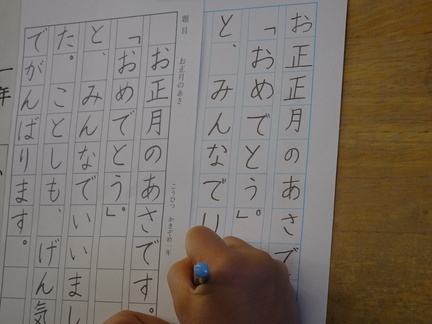 お正月のあさで
「おめでとう」。
と、みんなで
題目　お正月のあさ
こうひつ　かきぞめ　一年
お正月のあさです。
「おめでとう」。
と、みんなでいいまし
た。ことしも、げん気
でがんばります。
一年